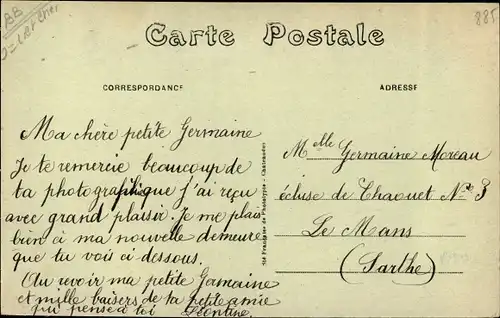 BB
885
Carte Postale
CORRESPONDANCE
ADRESSE
Ma chère petite Germaine
Je te remercie beaucoup de
ta photographique j'ai reçu
avec grand plaisir. Je me plais
bien à ma nouvelle demeure
que tu vois ci dessous.
Au revoir ma petite Germaine
et mille baisers de ta petite amie
qui pense à toi Léontine.
Française de Phototypie - Châteaudun
Melle Germaine Moreau
écluse de Chaouet No 3
Le Mans
(Sarthe)